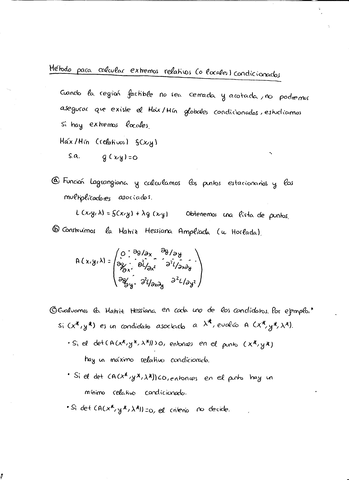 Método para calcular extremos relativos (o locales) condicionados
Cuando la región factible no sea cerrada y acotada, no podremos
asegurar que existe el Máx/Mín globales condicionados, estudiamos
si hay extremos locales.
Máx/Mín (relativos) f(x,y)
s.a. g(x,y)=0
ⓐ Función Lagrangiana y calculamos los puntos estacionarios y los
multiplicadores asociados.
L(x,y,λ) = f(x,y) + λg(x,y) Obtenemos una lista de puntos.
ⓑ Construimos la Matriz Hessiana Ampliada (u Horlada).
A(x,y,λ) = ( 0 ∂g/∂x ∂g/∂y
∂g/∂x ∂²L/∂x² ∂²L/∂x∂y
∂g/∂y ∂²L/∂x∂y ∂²L/∂y² )
ⓒ Evaluamos la Matriz Hessiana en cada uno de los candidatos. Por ejemplo:
Si (x*,y*) es un candidato asociado a λ*, evalúo A (x*,y*,λ*).
· Si el det (A(x*,y*,λ*))>0, entonces en el punto (x*,y*)
hay un máximo relativo condicionado.
· Si el det (A(x*,y*,λ*))<0, entonces en el punto hay un
mínimo relativo condicionado.
· Si det (A(x*,y*,λ*))=0, el criterio no decide.